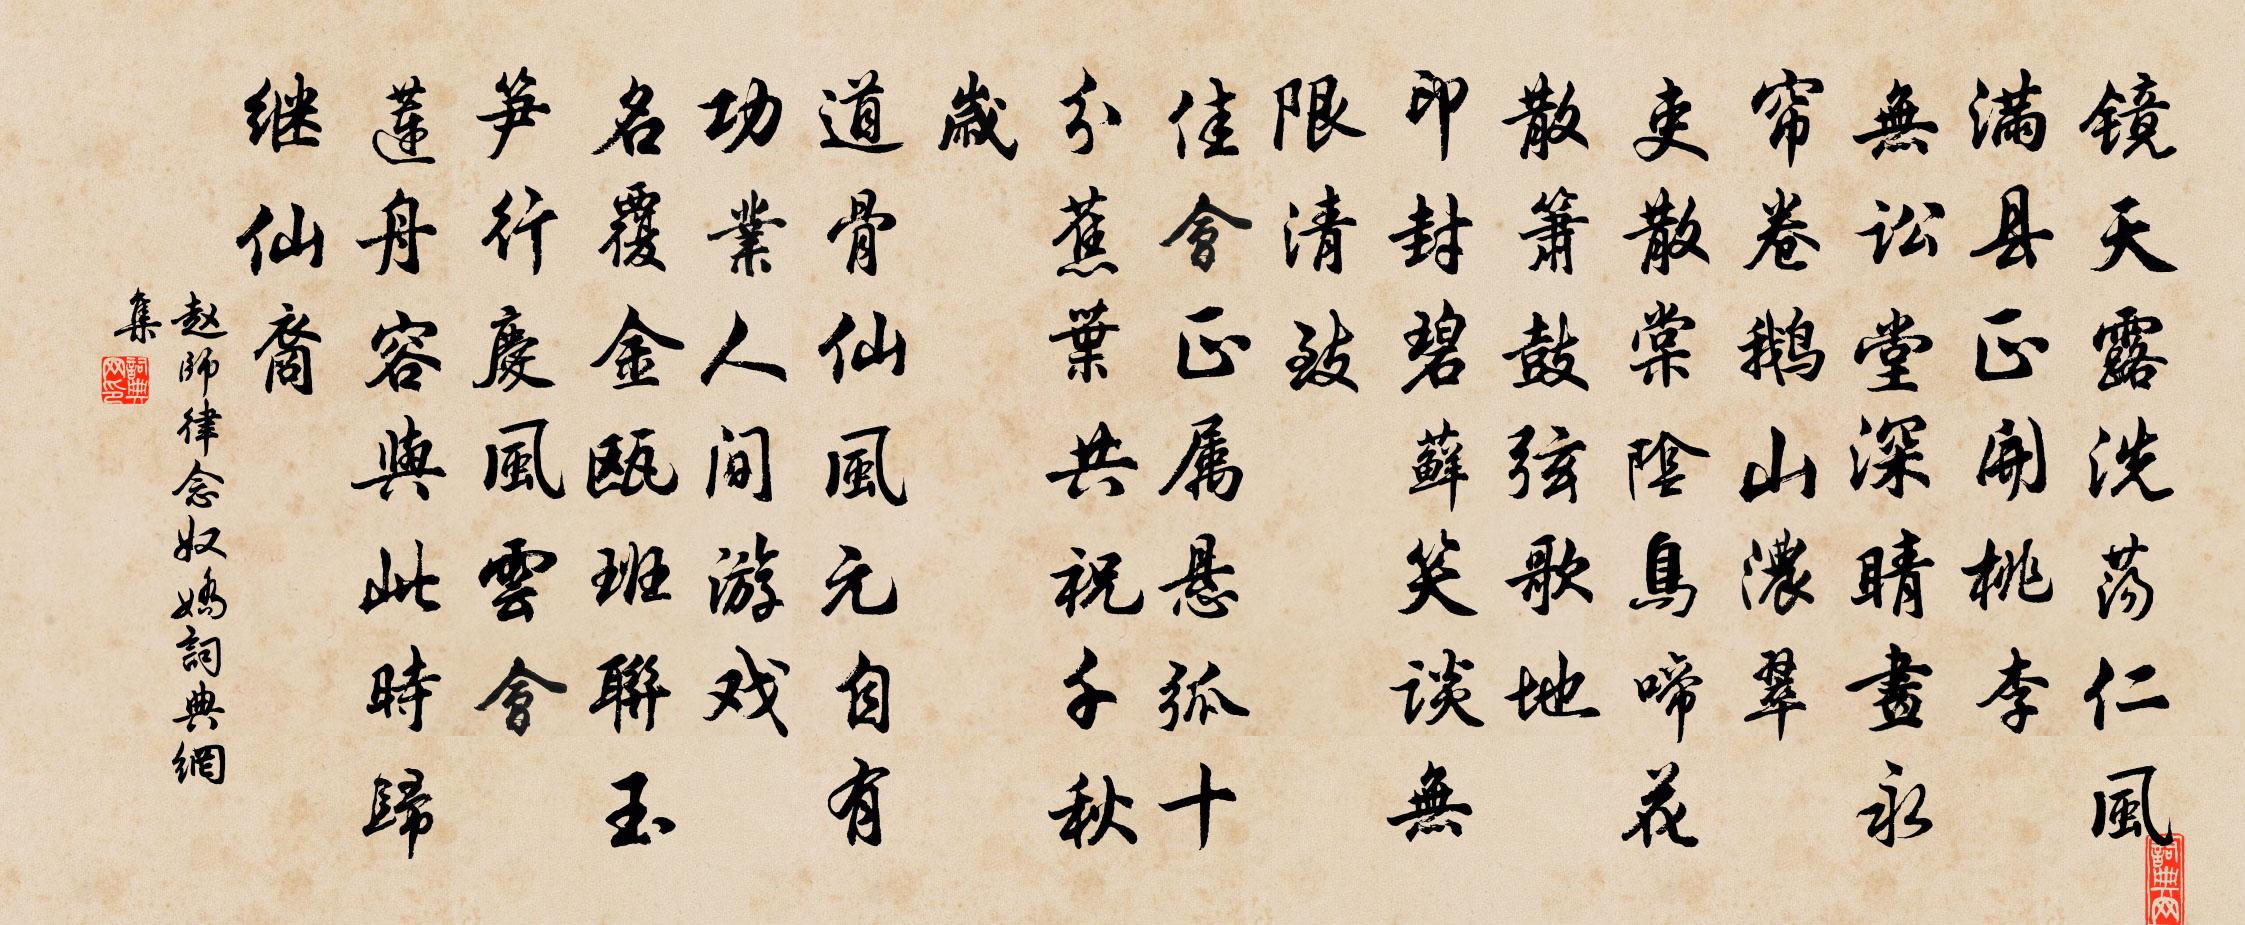 镜天露洗荡仁风
满县正開桃李
無讼堂深晴晝永
帘卷鹅山濃翠
吏散棠陰鳥啼花
散箫鼓弦歌地
印封碧蘚笑谈無
限清致
佳會正属悬弧十
分蕉葉共祝千秋
歲
道骨仙風元自有
功業人间游戏
名覆金瓯班聯玉
笋行慶風雲會
蓮舟容與此時歸
继仙裔
赵師律念奴嬌詞典網
集
詞典网印
詞典网